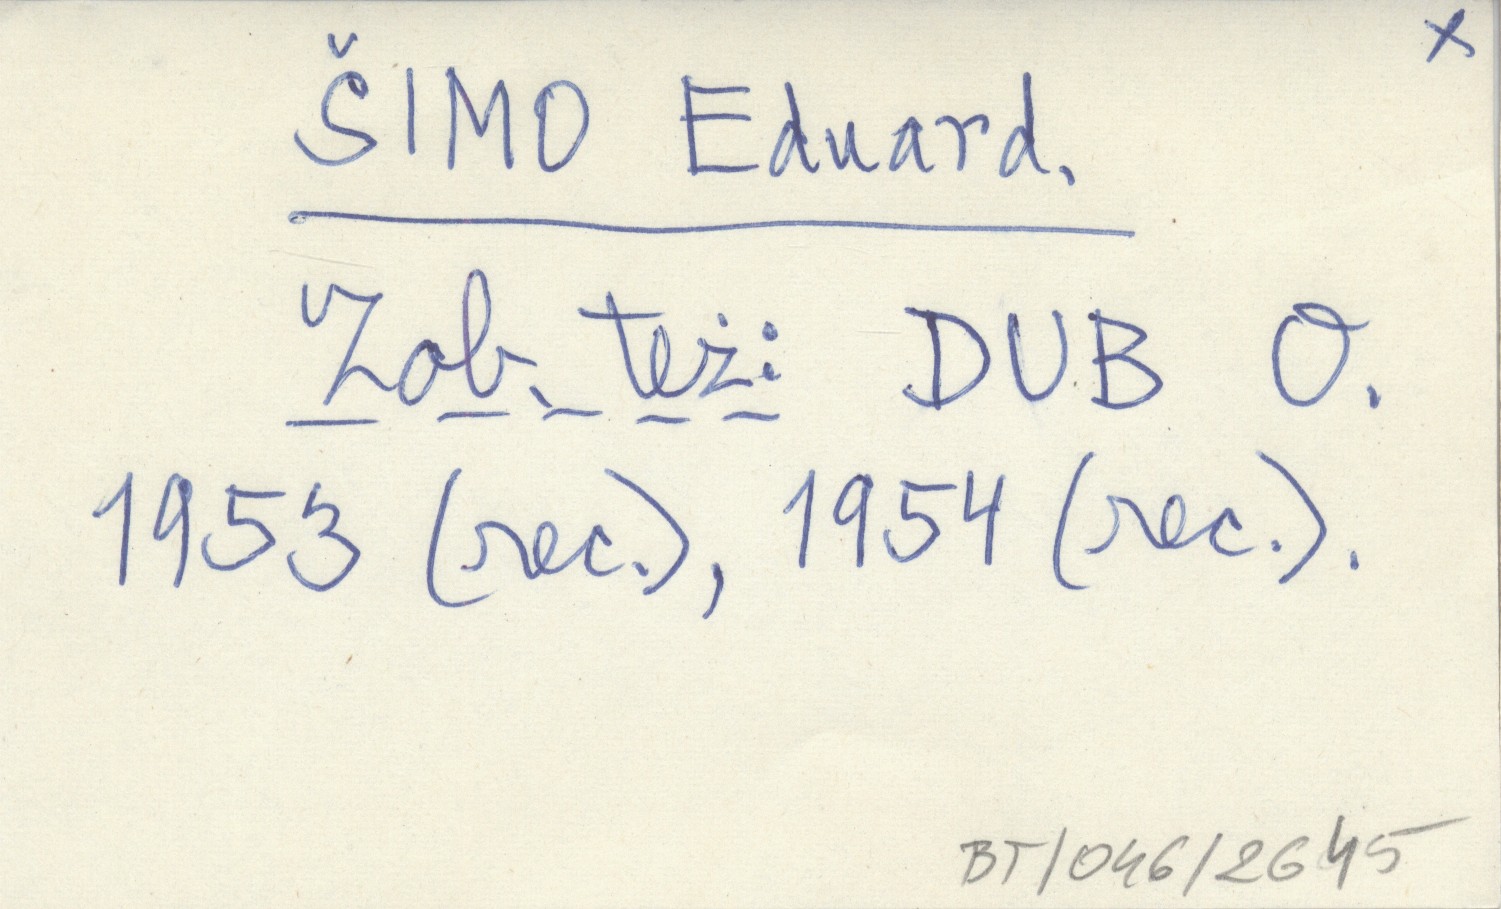 x
ŠIMO Eduard.
Zob. też: DUB O.
1953 (rec.), 1954 (rec.).
BT/046/2645